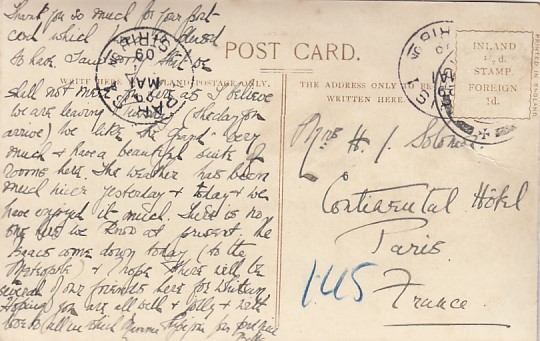 Thank you so much for your post
card which pleased
to have
POST CARD.
WRITE HERE INLAND POSTAGE ONLY.
THE ADDRESS ONLY TO BE
WRITTEN HERE.
INLAND
½d.
STAMP.
FOREIGN
1d.
PRINTED IN ENGLAND
shall not here as I believe
we are leaving (the day you
arrive) We like the "Grand" very
much & have a beautiful suite of
rooms here. The weather has been
much nicer yesterday & today & we
have enjoyed it much. There is no
one here we know at present. The
come down today (to the
Metropole) & I hope there will be
several of our friends here for Whitsun
Hoping you are all well & jolly & with
love to all in which joins
Mrs H. J. Solomon
Continental Hôtel
Paris
France
145